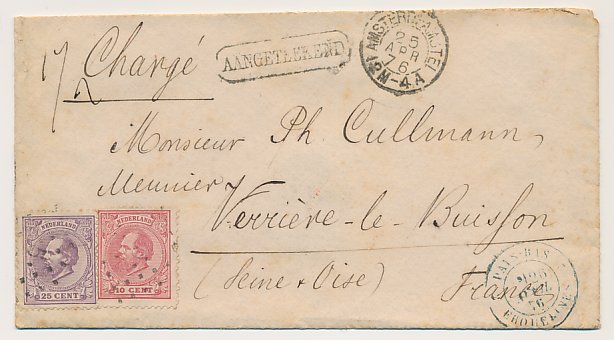 Chargé
AANGETEEKEND
AMSTERDAM
25
APR
76
12M-4A
Monsieur Ph. Cullmann,
Meunier
Verrière-le-Buisson
(Seine & Oise)
France
NEDERLAND
25 CENT
NEDERLAND
10 CENT
PAYS-BAS